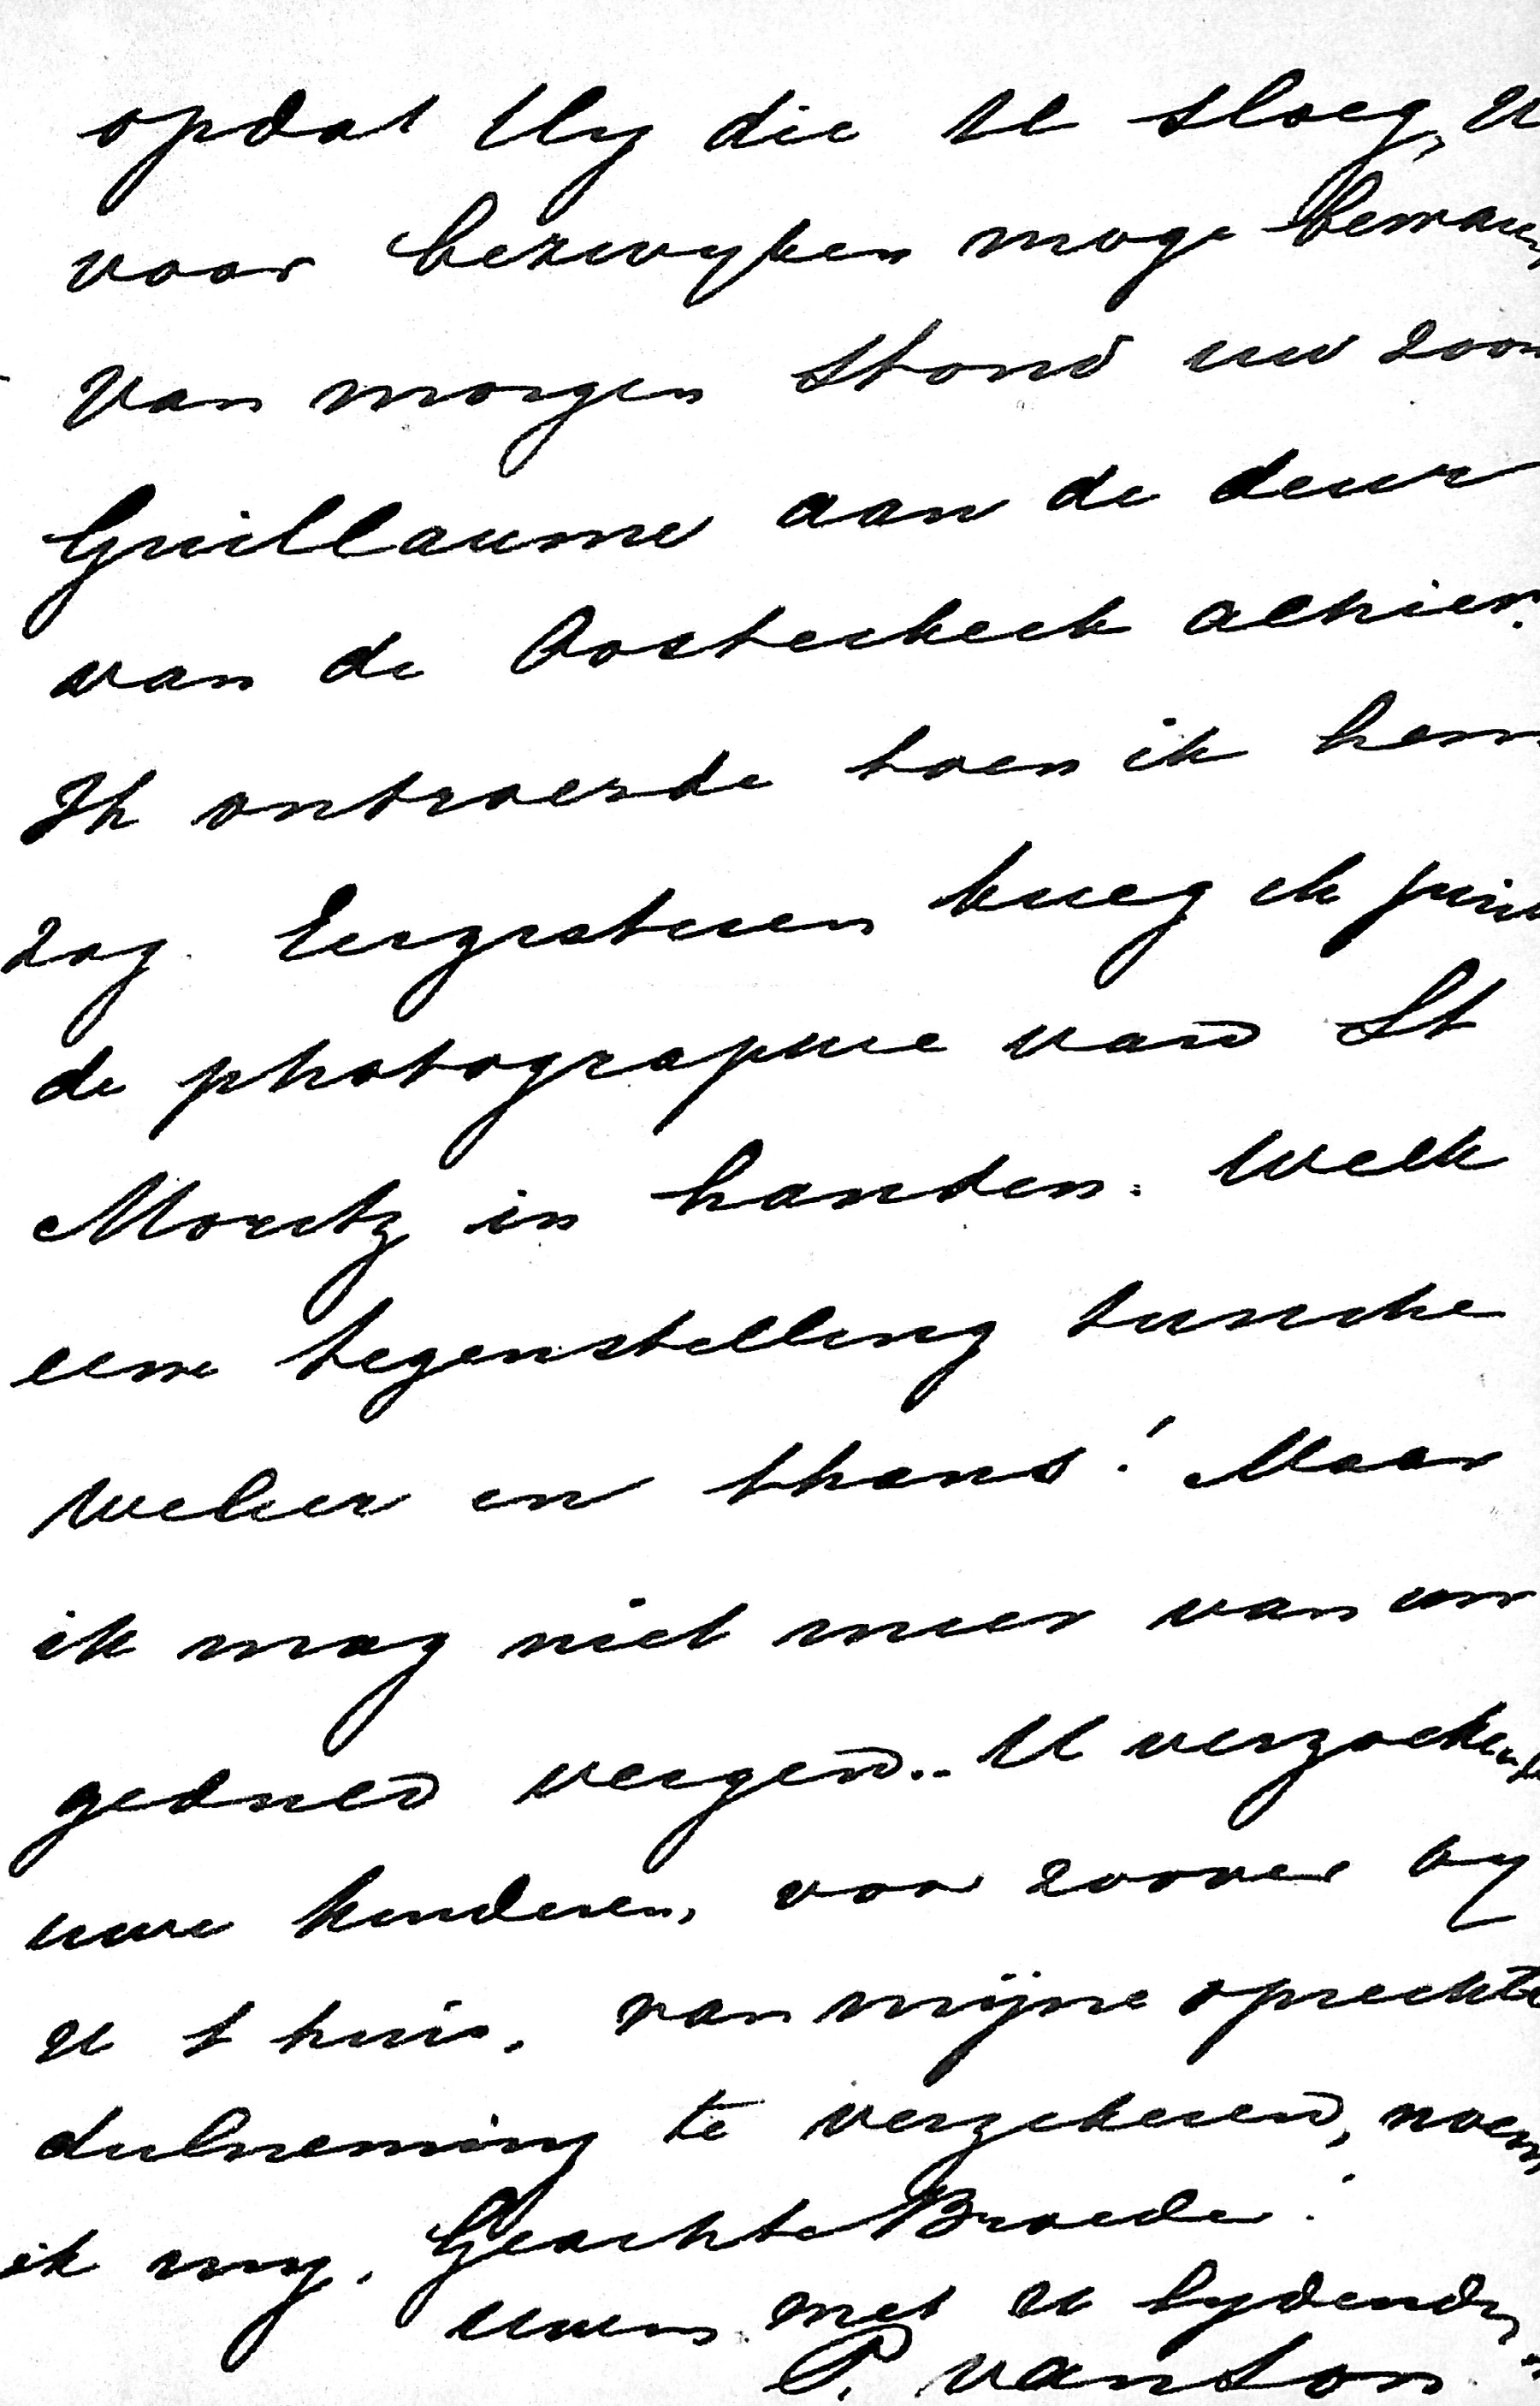 opdat Hy die U sloeg, U
voor bezwyken moge bewaren
Van morgen stond uw zoon
Guillaume aan de deur
van de Oosterkerk alhier.
Ik ontroerde toen ik hem
zag. Eergisteren kreeg ik juist
de photographie van St
Moritz in handen. Welk
eene tegenstelling tusschen
weleer en thans! Maar
ik mag niet meer van uw
geduld vergen.. U verzoekende
uwe kinderen, voor zoover by
U t huis, van mijne oprechte
deelneming te verzekeren, noem
ik my, Geachte Broeder!
Uwen met U lydenden
P. van Son